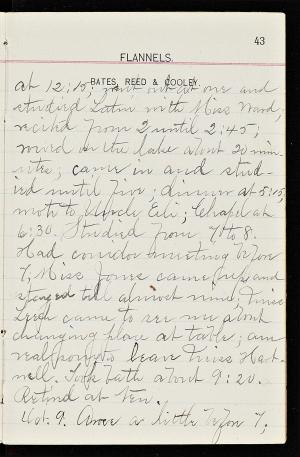 43
FLANNELS.
BATES, REED & COOLEY.
at 12:15; went out at one and
studied Latin with Miss Ward;
recited from 2 until 2:45;
rowed on the lake about 20 min-
utes; came in and stud-
ied until five; dinner at 5:15;
wrote to Uncle Eli; Chapel at
6:30. Studied from 7 to 8.
Had corridor meeting before
7; Miss Jones came up and
stayed till almost nine; Miss
came to see me about
changing place at table; am
really sorry to leave Miss Hart-
well. Took bath about 9:20.
Retired at ten.
Oct. 9. Arose a little before 7;